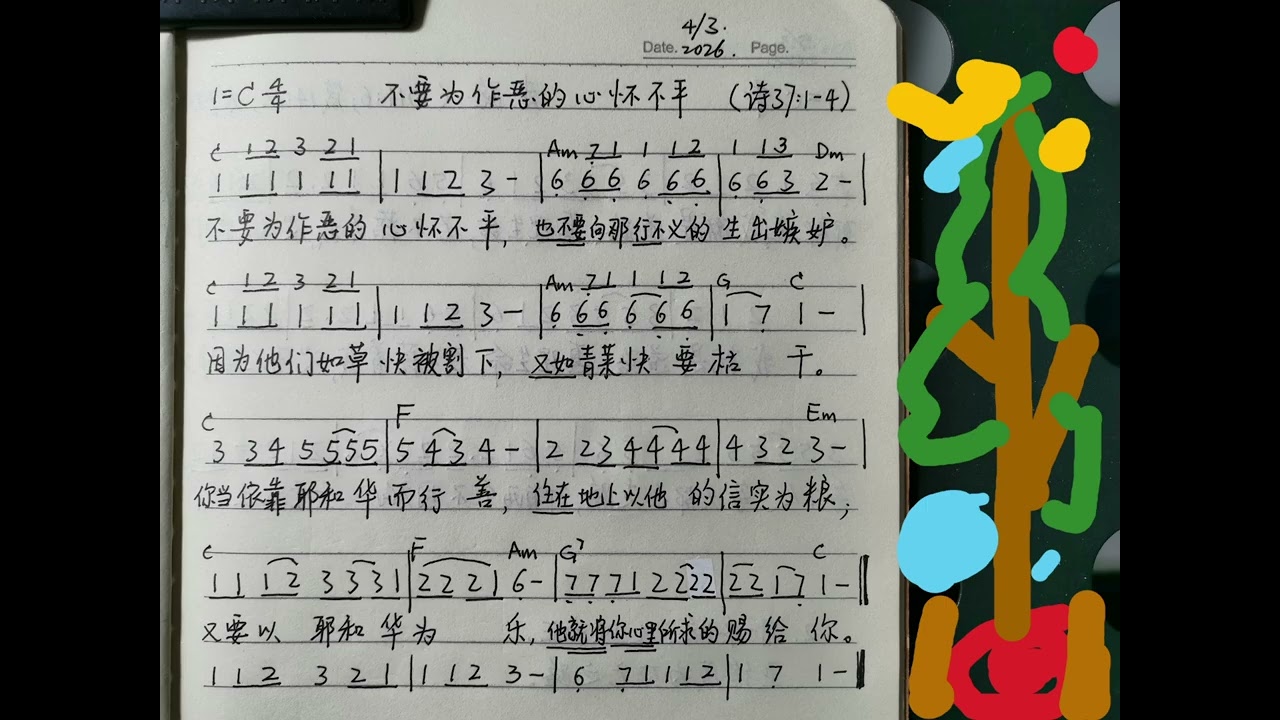 4/3.
Date. 2026. Page.
1=C 4/4 不要为作恶的心怀不平 (诗37:1-4)
C 1 2 3 2 1 Am 7 1 1 1 2 1 1 3 Dm
1 1 1 1 1 1 | 1 1 2 3 - | 6 6 6 6 6 6 | 6 6 3 2 - |
不要为作恶的心怀不平，也不要向那行不义的生出嫉妒。
C 1 2 3 2 1 Am 7 1 1 1 2 G C
1 1 1 1 1 1 | 1 1 2 3 - | 6 6 6 6 6 6 | 1 7 1 - |
因为他们如草快被割下，又如青菜快要枯干。
C F Em
3 3 4 5 5 5 5 | 5 4 3 4 - | 2 2 3 4 4 4 4 | 4 3 2 3 - |
你当依靠耶和华而行善，住在地上以他的信实为粮；
C F Am G7 C
1 1 1 2 3 3 3 1 | 2 2 2 1 6 - | 7 7 7 1 2 2 2 2 2 | 2 2 1 7 1 - ‖
又要以耶和华为乐，他就将你心里所求的赐给你。
1 1 2 3 2 1 | 1 1 2 3 - | 6 7 1 1 1 2 | 1 7 1 - ‖